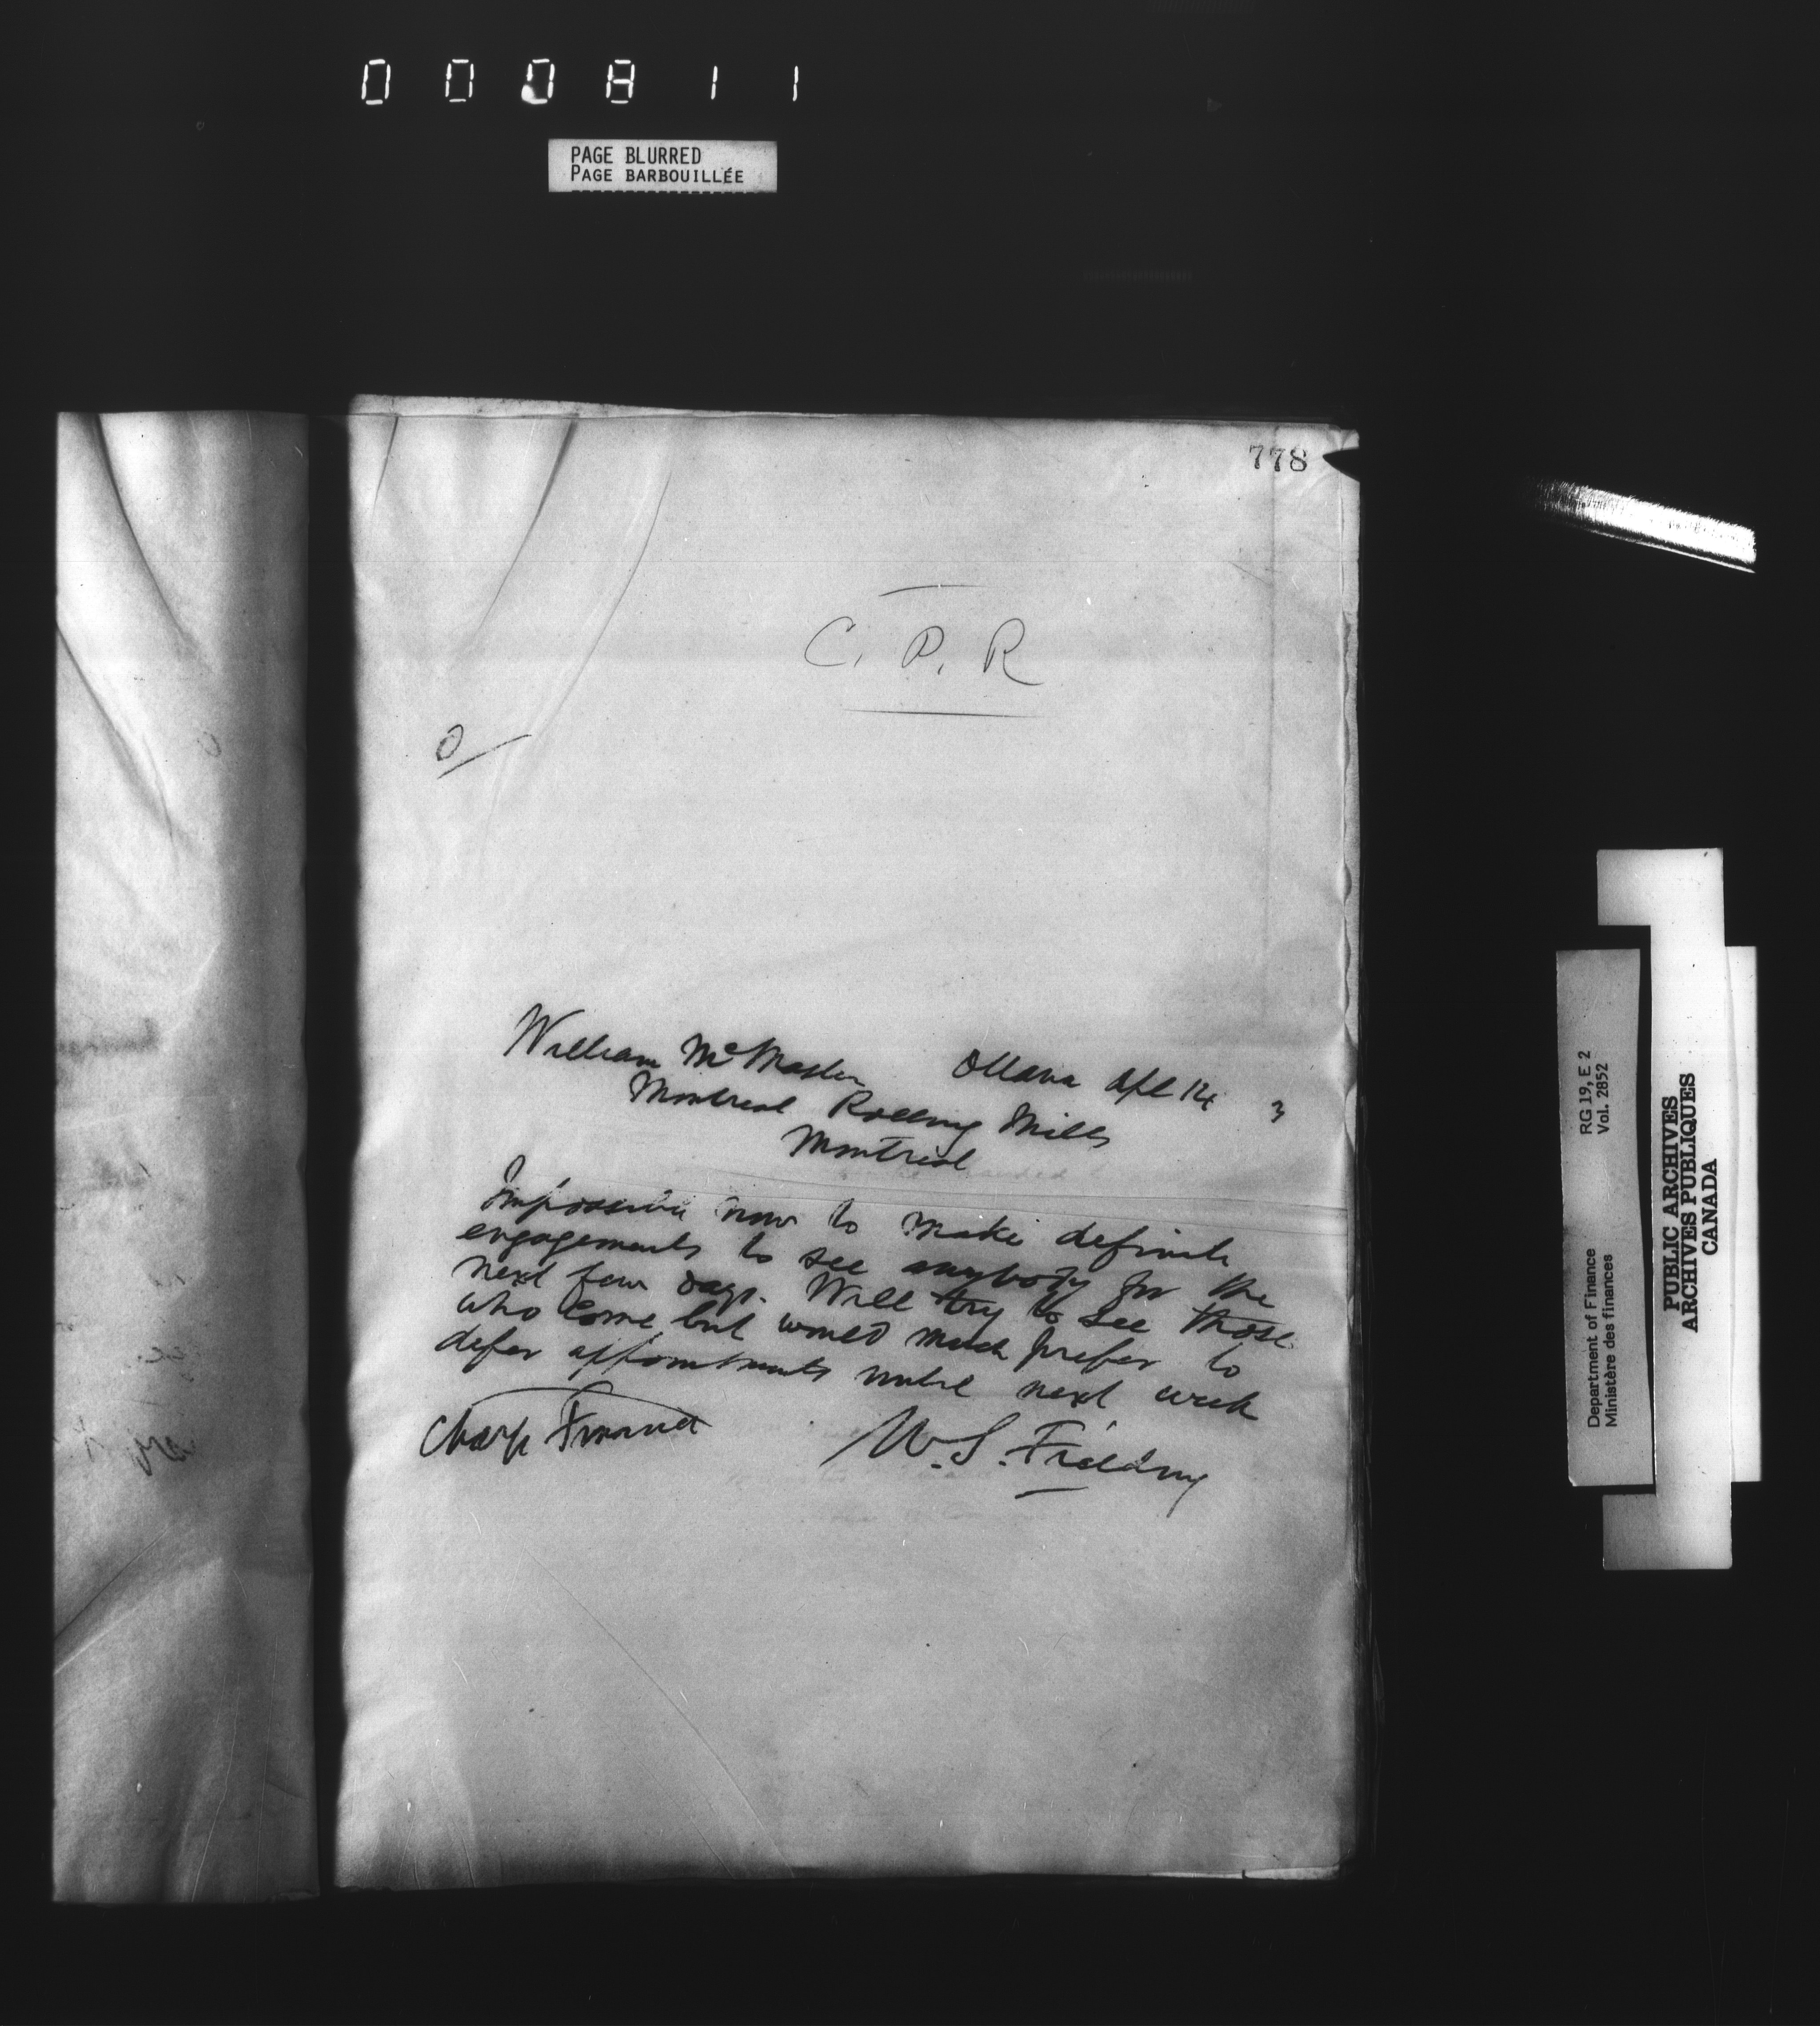 000811
PAGE BLURRED
PAGE BARBOUILLÉE
778
C. P. R
Ottawa Apl 14 3
William McMaster
Montreal Rolling Mills
Montreal
Impossible now to make definite
engagements to see anybody for the
next few days. Will try to see those
who come but would much prefer to
defer appointments until next week
Charge Finance
W. S. Fielding
RG 19, E 2
Vol. 2852
Department of Finance
Ministère des finances
PUBLIC ARCHIVES
ARCHIVES PUBLIQUES
CANADA